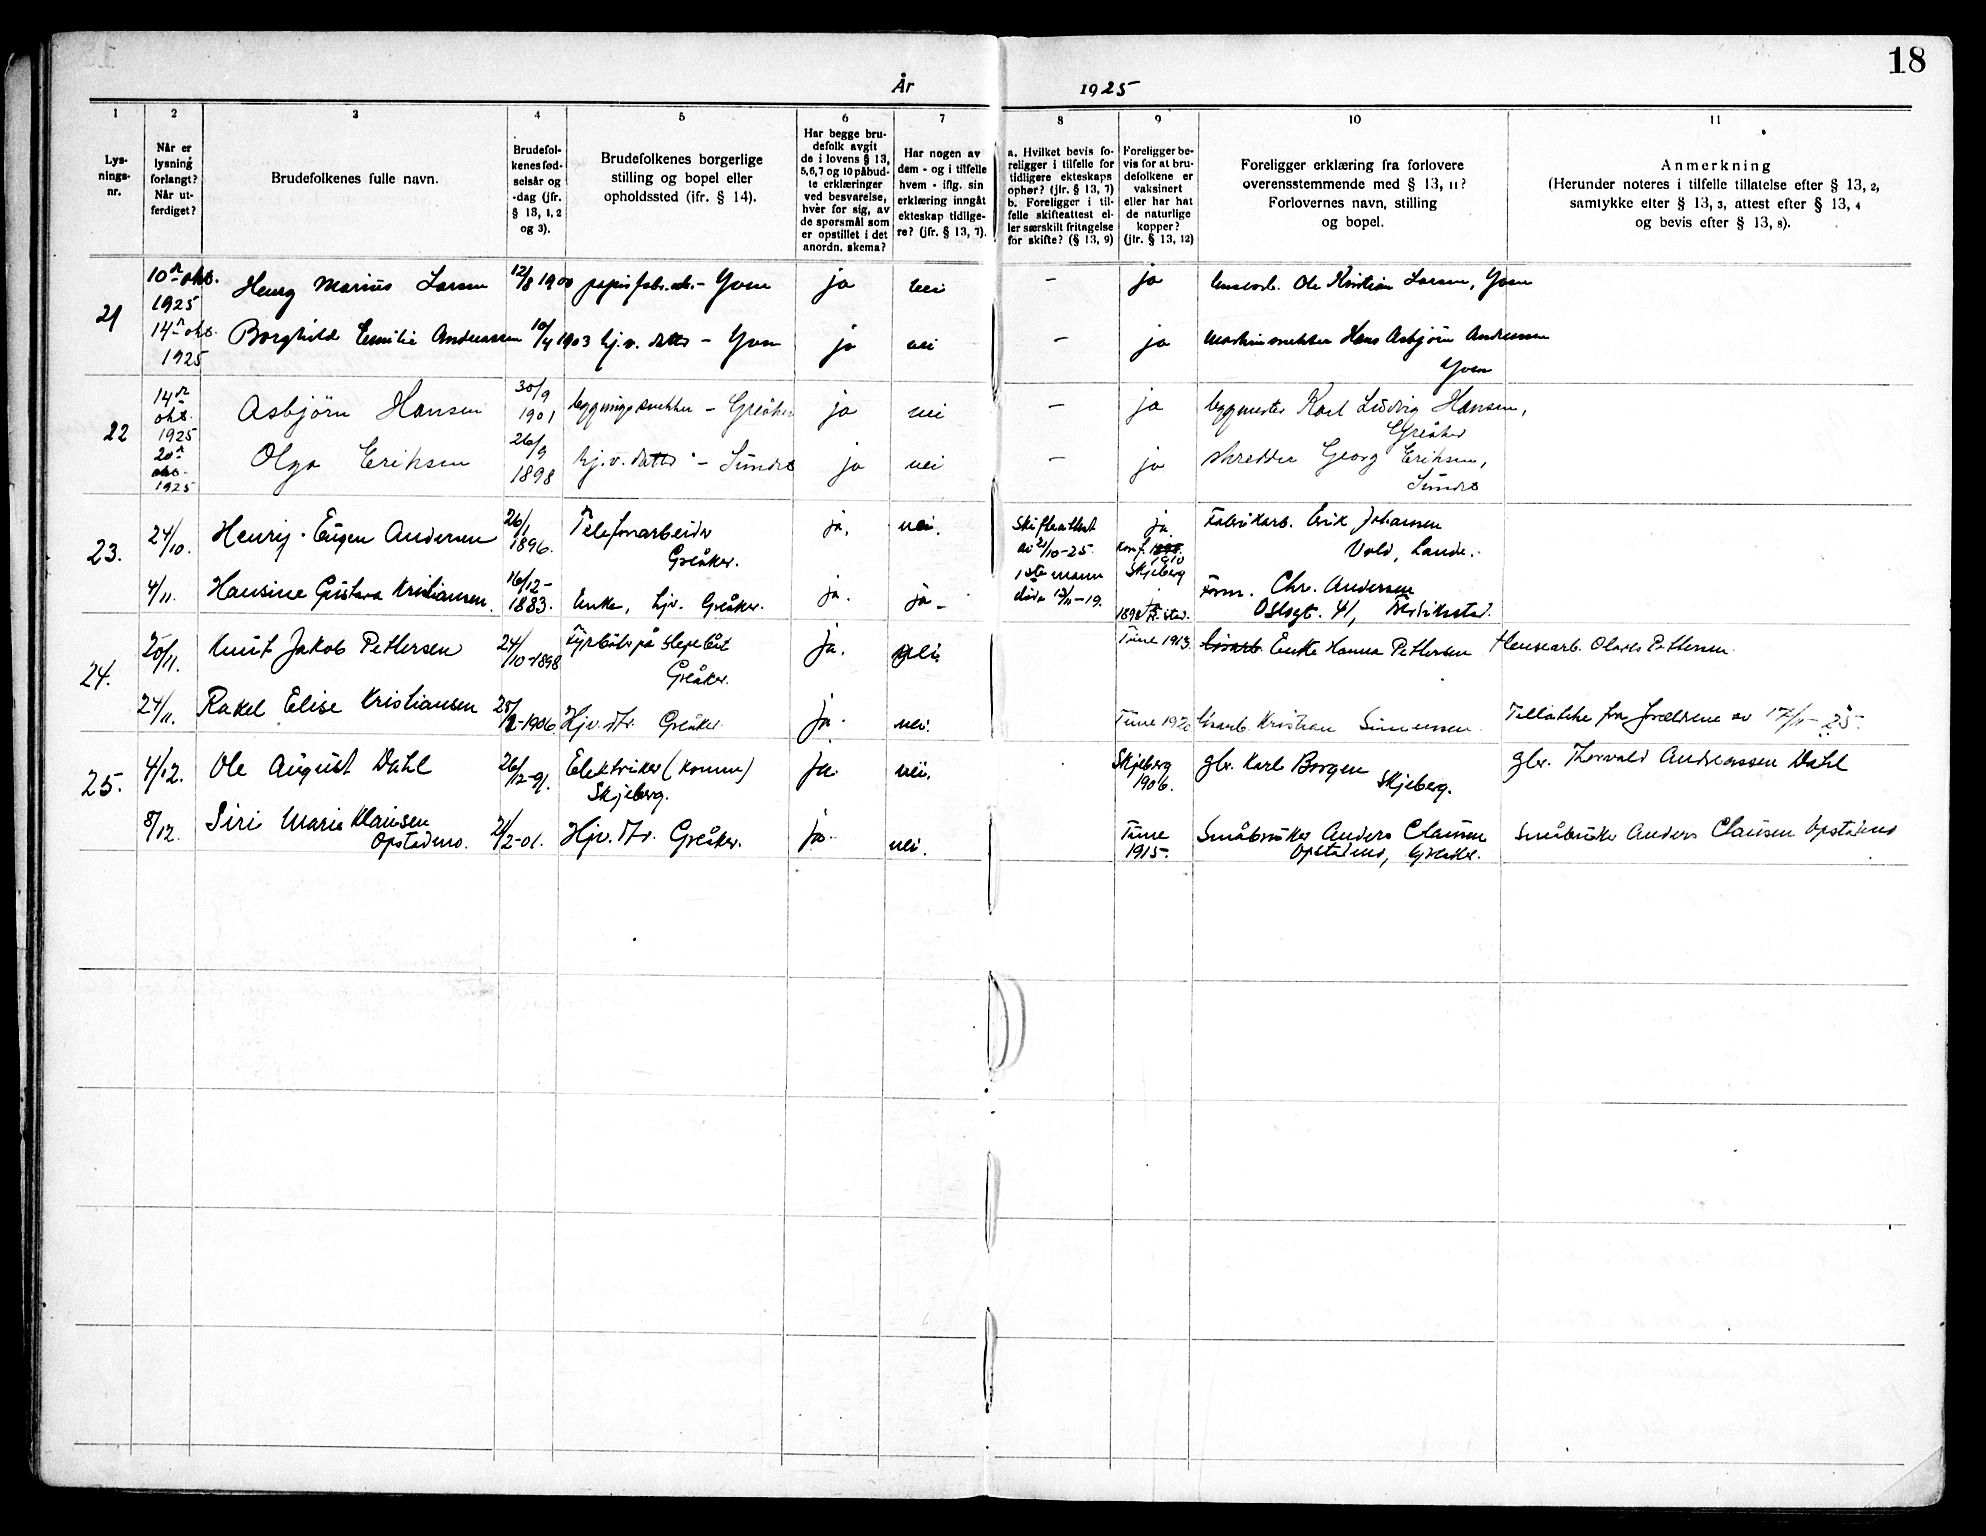 18
År 1925
1 2 3 4 5 6 7 8 9 10 11
Lys-
nings-
nr.
Når er
lysning
forlangt?
Når ut-
ferdiget?
Brudefolkenes fulle navn.
Brudefol-
kenes fød-
selsår og
-dag (jfr.
§ 13, 1, 2
og 3).
Brudefolkenes borgerlige
stilling og bopel eller
opholdssted (ifr. § 14).
Har begge bru-
defolk avgit
de i lovens § 13,
5, 6, 7 og 10 påbud-
te erklæringer
ved besvarelse,
hver for sig, av
de spørsmål som
er opstillet i det
anordn. skema?
Har nogen av
dem - og i tilfelle
hvem - iflg. sin
erklæring inngåt
ekteskap tidlige-
re? (jfr. § 13, 7).
a. Hvilket bevis fo-
religger i tilfelle for
tidligere ekteskaps
ophør? (jfr. § 13, 7)
b. Foreligger i til-
felle skifteattest el-
ler særskilt fritagelse
for skifte? (§ 13, 9)
Foreligger be-
vis for at bru-
defolkene er
vaksinert
eller har hat
de naturlige
kopper?
(jfr. § 13, 12)
Foreligger erklæring fra forlovere
overensstemmende med § 13, 11?
Forlovernes navn, stilling
og bopel.
Anmerkning
(Herunder noteres i tilfelle tillatelse efter § 13, 2,
samtykke efter § 13, 3, attest efter § 13, 4
og bevis efter § 13, 8).
21
10n okt.
1925
Henry Marius Larsen 12/8 1900 papirfabr.arb. - Yven ja nei - ja Ole Kristian Larsen, Yven
14n okt.
1925
Borghild Emilie Andreassen 10/4 1903 hj.v. datter - Yven ja nei - ja maskinsnekker Hans Asbjørn Andreassen
Yven
22
14n
okt.
1925
Asbjörn Hansen 30/9
1901
bygningssnekker - Greåker ja nei - ja byggmester Karl Ludvig Hansen,
Greåker
20n
okt.
1925
Olga Eriksen 26/9
1898
hj.v. datter - Sundet ja nei - ja skredder Georg Eriksen,
Sundet
23. 24/10. Henry Eugen Andersen 26/1
1896.
Telefonarbeider
Greåker.
ja. nei. Skifteattest
av 21/10-25.
ja
Konf.
1910
Skjeberg
Fabrikarb. Erik Johansen
Vold, Lande.
4/11. Hansine Gustava Kristiansen. 16/12-
1883.
Enke, hjv. Greåker. ja. ja - 1ste mann
døde 12/11-19.
ja
1898 Fr.stad.
Form. Chr. Andersen
Oslogt. 41, Fredrikstad.
24. 20/11. Knut Jakob Pettersen 24/10-1898 Fyrböter på slepebåt
Greåker.
ja. nei. Tune 1913. Enke Hanna Pettersen Hensearb. Olaves Pettersen.
24/11. Rakel Elise Kristiansen 25/2-1906 Hjv. dtr. Greåker ja. nei. Tune 1920 løsarb. Kristian Simensen. Tillatelse fra foreldrene av 17/11-25.
25. 4/12. Ole August Dahl 26/12-91. Elektriker (Komm)
Skjeberg.
ja. nei. Skjeberg
1906.
gbr. Karl Borgen
Skjeberg.
gbr. Thorvald Andreassen Dahl
8/12. Siri Marie Klausen
Opstadmo.
21/2-01. Hjv. dtr. Greåker. ja. nei. Tune
1915.
Småbruker Anders Clausen
Opstadmo, Greåker.
Småbruker Anders Clausen Opstadmo